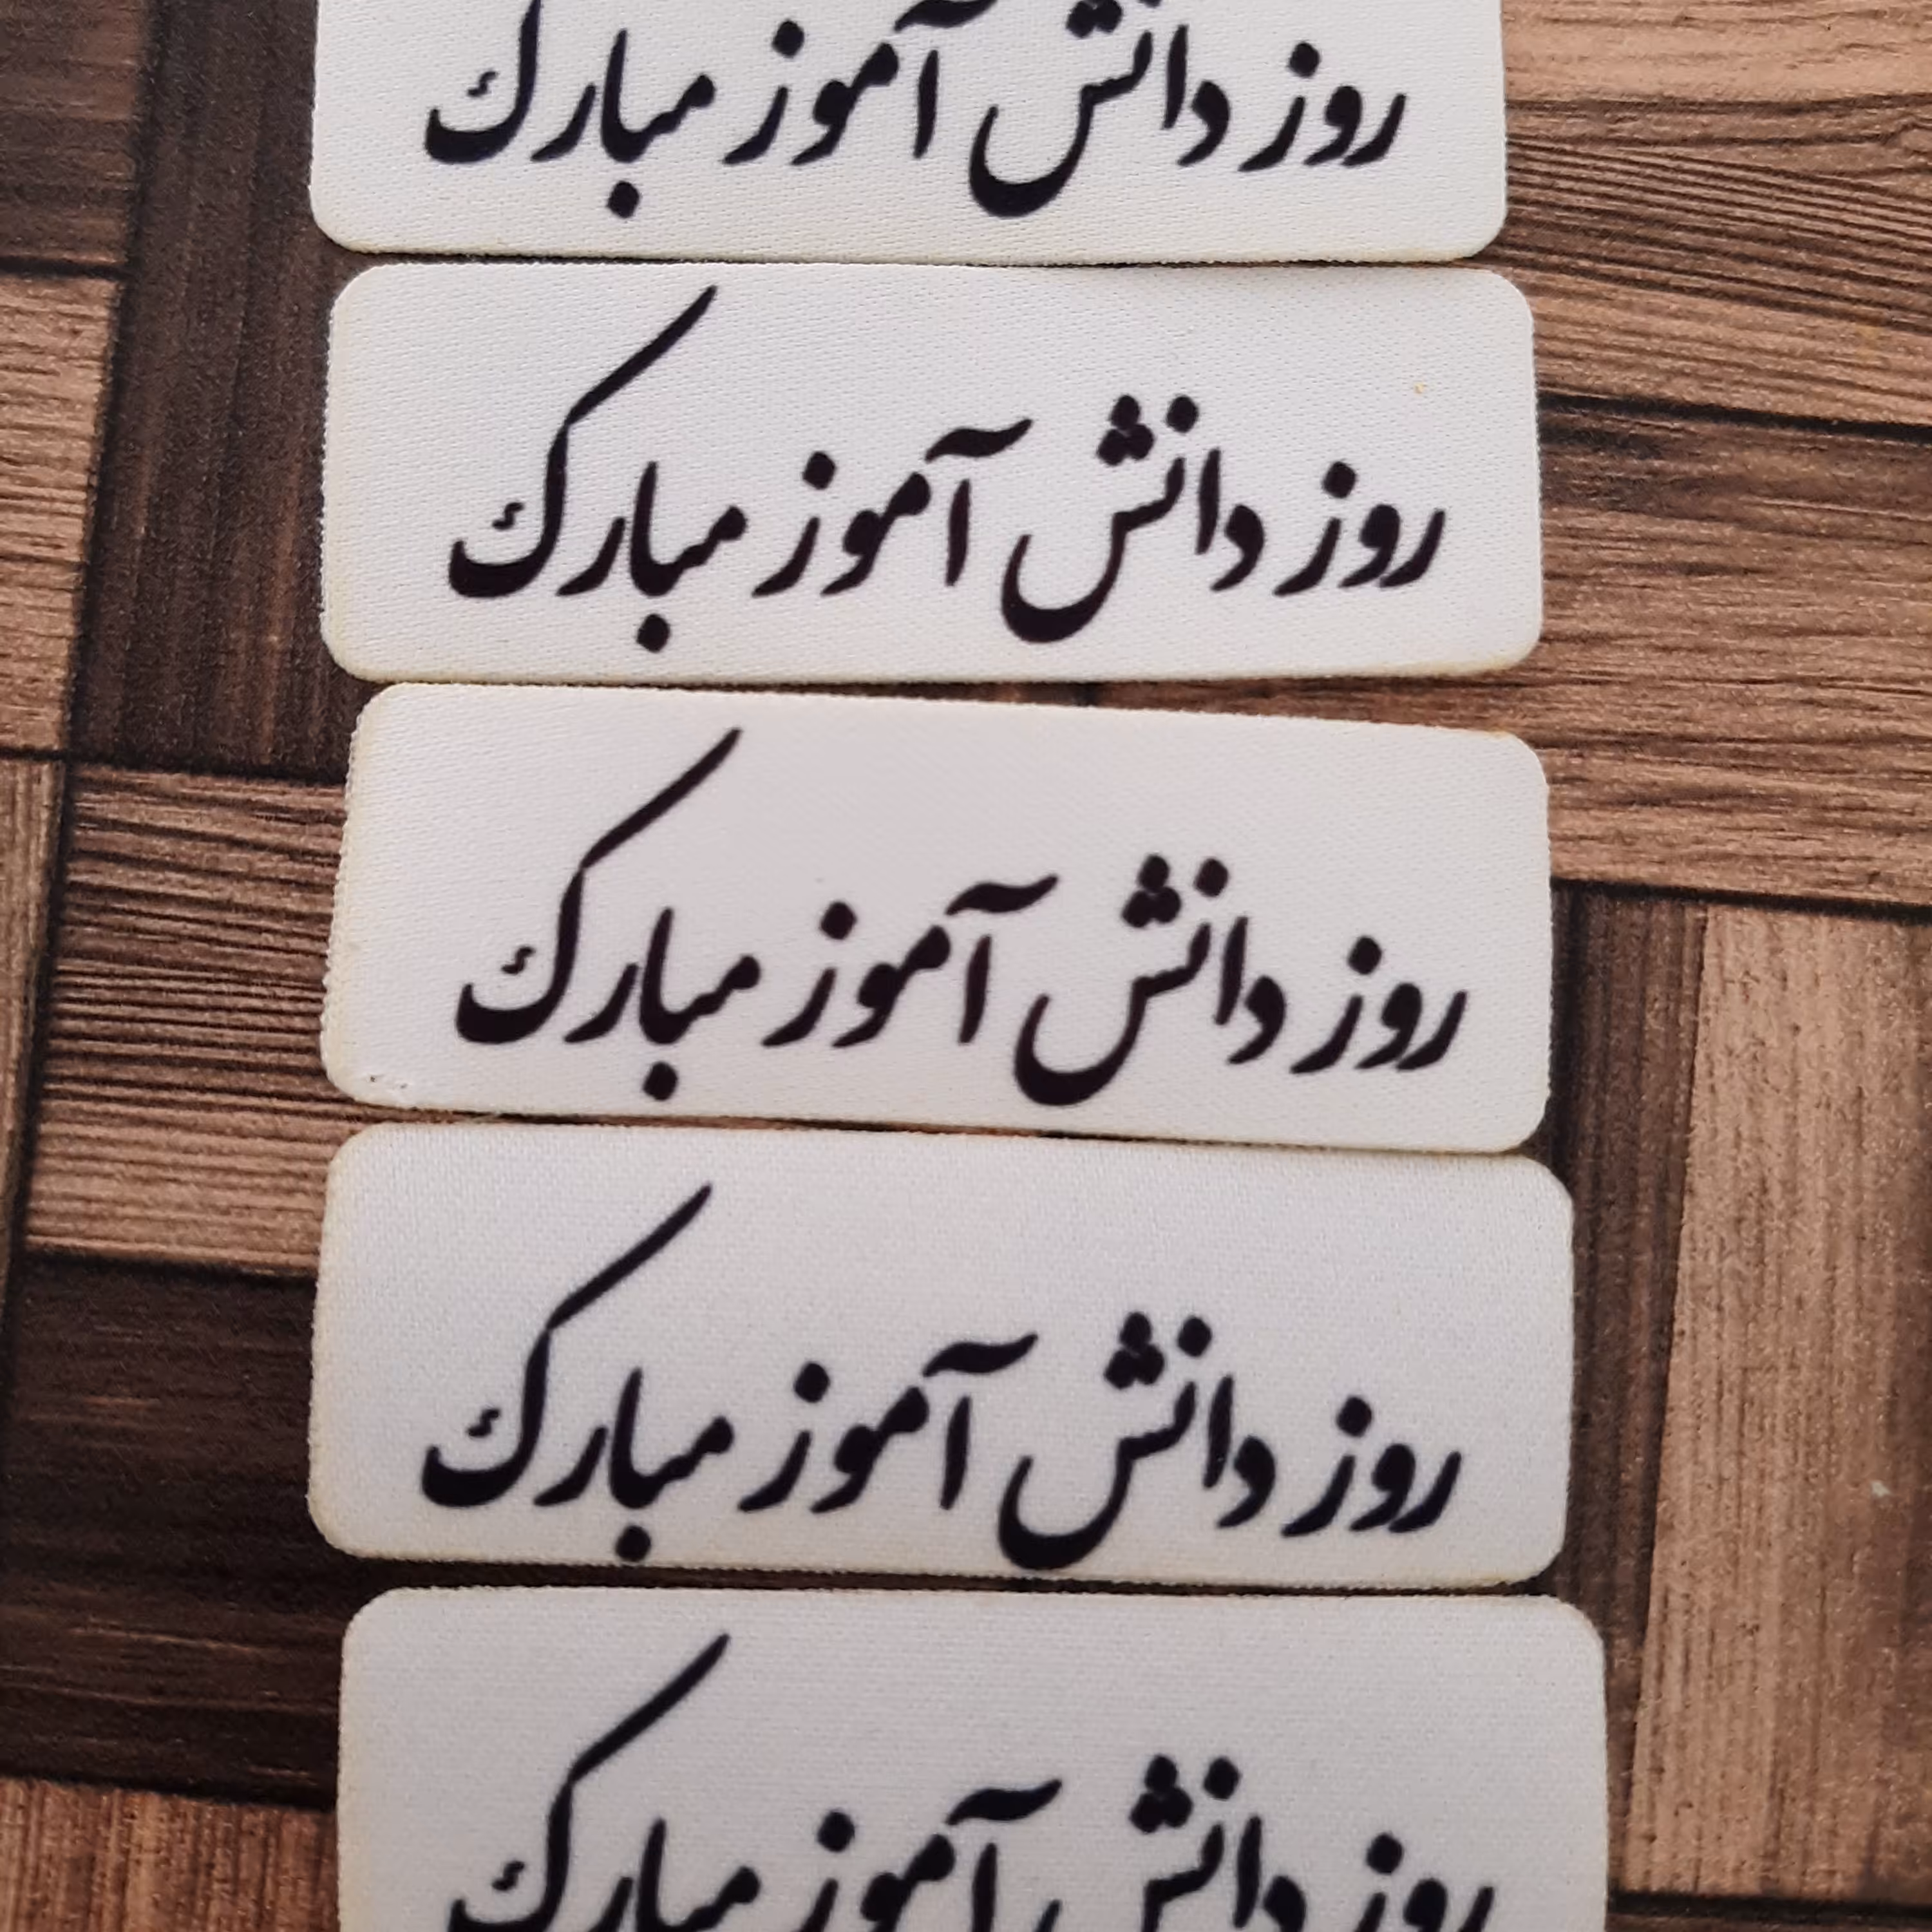 روز دانش آموز مبارک
روز دانش آموز مبارک
روز دانش آموز مبارک
روز دانش آموز مبارک
روز دانش آموز مبارک